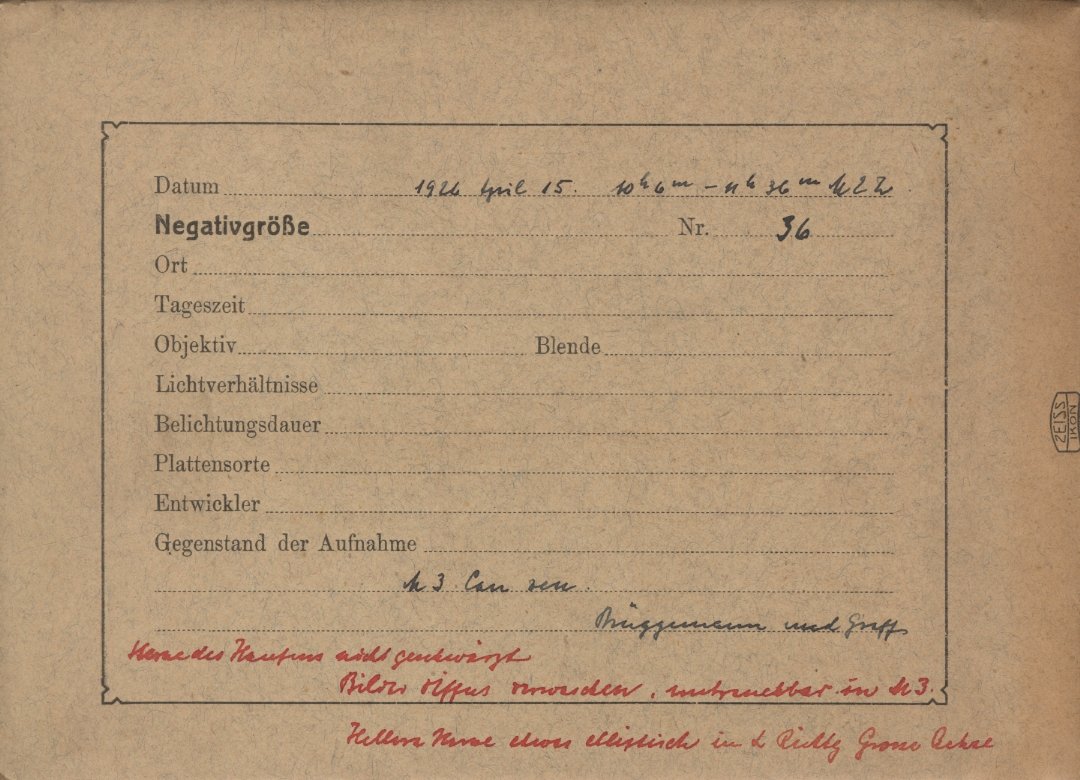 Datum 1926 April 15. 10h 6m – 11h 36m MEZ
Negativgröße Nr. 36
Ort
Tageszeit
Objektiv Blende
Lichtverhältnisse
Belichtungsdauer
Plattensorte
Entwickler
Gegenstand der Aufnahme
M 3 Can ven.
Brüggemann und Graff
des Haufens nicht geschwärzt
Bilder diffus verwaschen, untrennbar in M 3.
Hellere Sterne etwas elliptisch in Grosse Achse
ZEISS
IKON